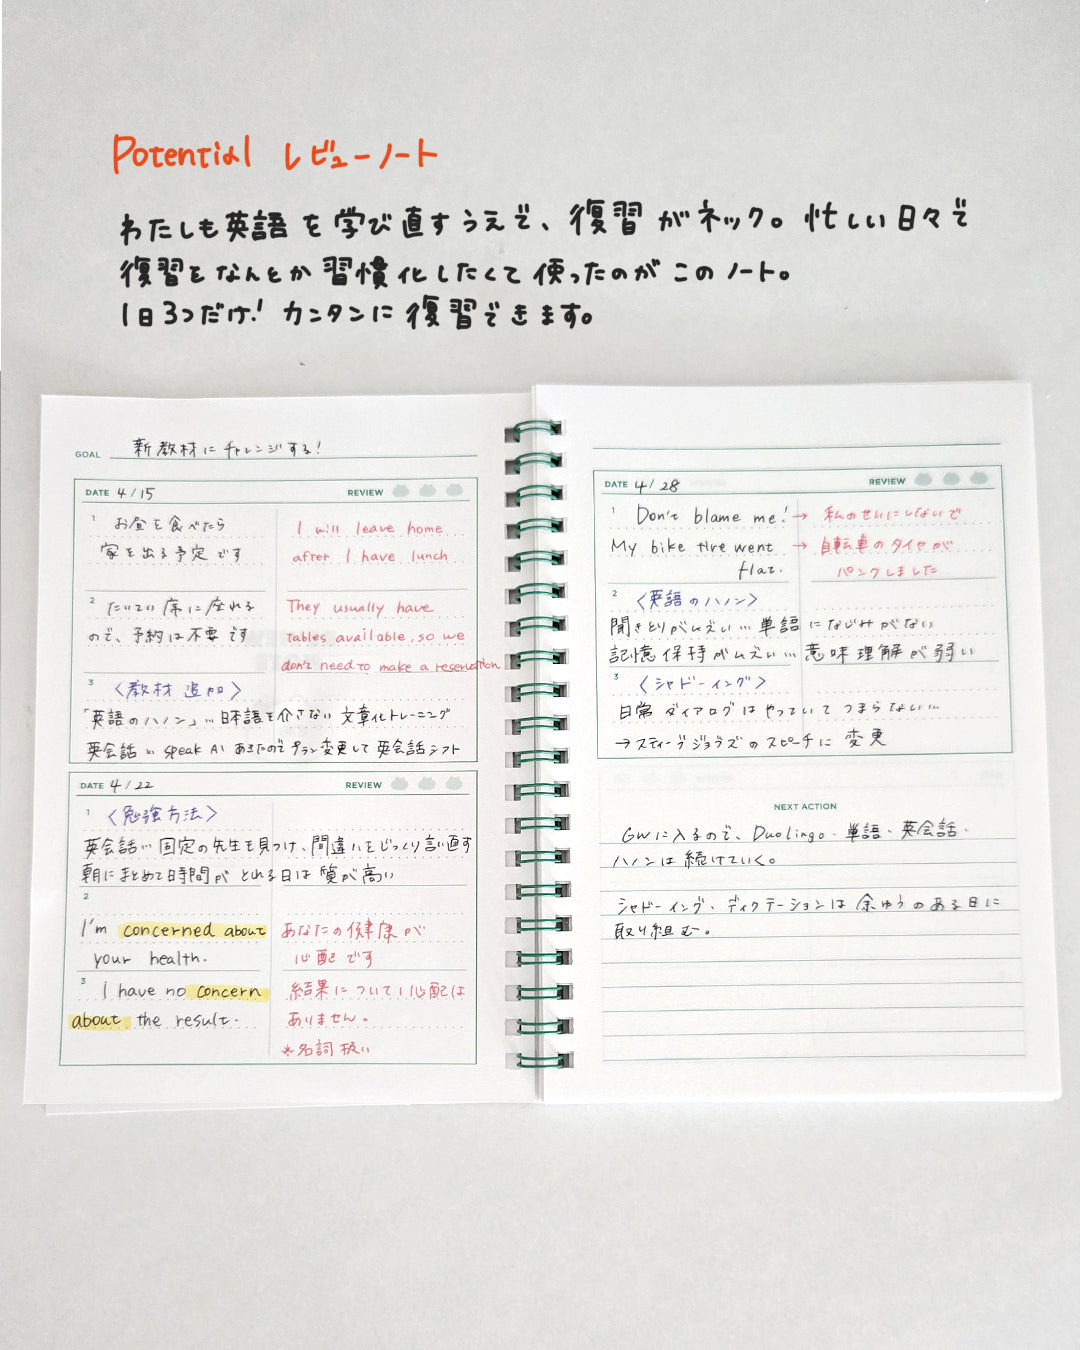 Potential レビューノート
わたしも英語を学び直すうえで、復習がネック。忙しい日々で
復習をなんとか習慣化したくて使ったのがこのノート。
1日3つだけ!カンタンに復習できます。
GOAL 新教材にチャレンジする!
DATE 4/15 REVIEW
1 お昼を食べたら
家を出る予定です
I will leave home
after I have lunch
2 だいたい席に座れる
ので、予約は不要です
They usually have
tables available, so we
don't need to make a reservation
3 〈教材追加〉
「英語のハノン」…日本語を介さない文章化トレーニング
英会話…speak AI あきたのでプラン変更して英会話シフト
DATE 4/22 REVIEW
1 〈勉強方法〉
英会話…固定の先生を見つけ、間違いをじっくり言い直す
朝にまとめて時間がとれる日は質が高い
2
I'm concerned about
your health.
あなたの健康が
心配です
3 I have no concern
about the result.
結果について心配は
ありません。
*名詞扱い
DATE 4/28 REVIEW
1 Don't blame me! → 私のせいにしないで
My bike tire went
flat.
→ 自転車のタイヤが
パンクしました
2 〈英語のハノン〉
聞きとりがムズい…単語になじみがない
記憶保持がムズい…意味理解が弱い
3 〈シャドーイング〉
日常ダイアログはやっていてつまらない…
→スティーブジョブズのスピーチに変更
NEXT ACTION
GWに入るので、Duolingo・単語・英会話・
ハノンは続けていく。
シャドーイング、ディクテーションは余ゆうのある日に
取り組む。